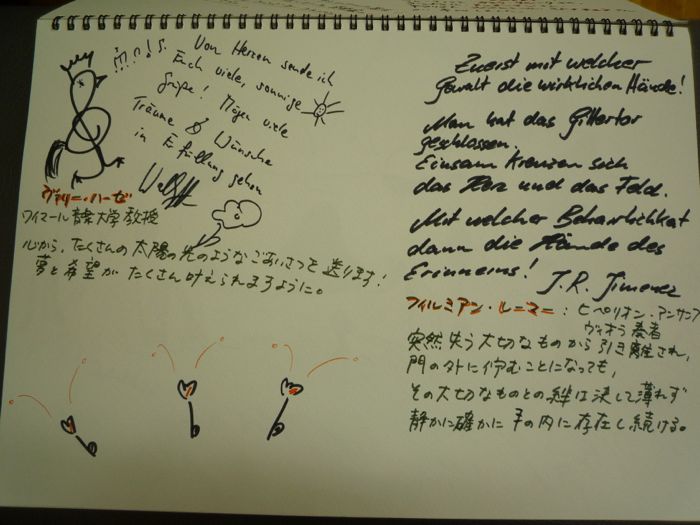 Von Herzen sende ich
Euch viele, sonnige
Grüße! Mögen viele
Träume & Wünsche
in Erfüllung gehen
ヴァリー・ハーゼ
ワイマール音楽大学教授
心から、たくさんの太陽の光のようなごあいさつを送ります!
夢と希望がたくさん叶えられますように。
Zuerst mit welcher
Gewalt die wirklichen Hände!
Man hat das Gittertor
geschlossen.
Einsam kreuzen sich
das Herz und das Feld.
Mit welcher Beharrlichkeit
dann die Hände des
Erinnerns!
J.R. Jimenez
フィルミアン・レーマー:ヒペリオン・アンサンブル
ヴィオラ奏者
突然失う大切なものから引き離され、
門の外に佇むことになっても、
その大切なものとの絆は決して薄れず
静かに確かに子の内に存在し続ける。